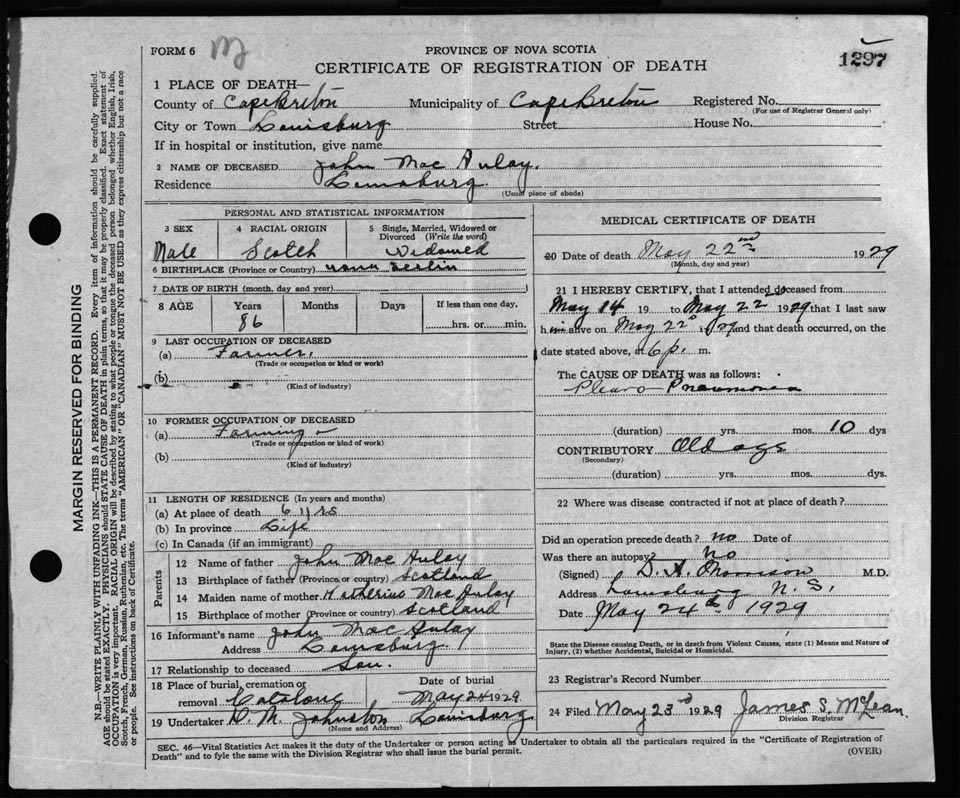 FORM 6
PROVINCE OF NOVA SCOTIA
CERTIFICATE OF REGISTRATION OF DEATH
1297
1 PLACE OF DEATH—
County of Cape Breton Municipality of Cape Breton Registered No.
(For use of Registrar General only)
City or Town Louisburg Street House No.
If in hospital or institution, give name
2 NAME OF DECEASED John Mac Aulay.
Residence Louisburg.
(Usual place of abode)
PERSONAL AND STATISTICAL INFORMATION
3 SEX
Male
4 RACIAL ORIGIN
Scotch
5 Single, Married, Widowed or Divorced (Write the word)
Widowed
6 BIRTHPLACE (Province or Country)
7 DATE OF BIRTH (month, day and year)
8 AGE Years Months Days If less than one day,
86 hrs. or min.
9 LAST OCCUPATION OF DECEASED
(a) Farmer.
(Trade or occupation or kind of work)
(b)
(Kind of industry)
10 FORMER OCCUPATION OF DECEASED
(a) Farming
(Trade or occupation or kind of work)
(b)
(Kind of industry)
11 LENGTH OF RESIDENCE (In years and months)
(a) At place of death yrs
(b) In province Life
(c) In Canada (if an immigrant)
Parents
12 Name of father John Mac Aulay
13 Birthplace of father (Province or country) Scotland
14 Maiden name of mother Katherine Mac Aulay
15 Birthplace of mother (Province or country) Scotland
16 Informant's name John MacAulay
Address Louisburg
17 Relationship to deceased Son.
18 Place of burial, cremation or removal Catalone
Date of burial
May 24 1929.
19 Undertaker D. M. Johnston Louisburg
(Name and Address)
MEDICAL CERTIFICATE OF DEATH
20 Date of death May 22nd 1929
(Month, day and year)
21 I HEREBY CERTIFY, that I attended deceased from
May 14 19 to May 22nd 1929 that I last saw
him alive on May 22 1929 and that death occurred, on the
date stated above, at 6 p. m.
The CAUSE OF DEATH was as follows:
Pleuro Pneumonia
(duration) yrs. mos. 10 dys
CONTRIBUTORY Old age
(Secondary)
(duration) yrs. mos. dys.
22 Where was disease contracted if not at place of death?
Did an operation precede death? no Date of
Was there an autopsy? No
(Signed) D. A. Morrison M.D.
Address Louisburg N. S.
Date May 24th 1929
State the Disease causing Death, or in death from Violent Causes, state (1) Means and Nature of
Injury, (2) whether Accidental, Suicidal or Homicidal.
23 Registrar's Record Number
24 Filed May 23rd 1929 James S. McLean.
Division Registrar
SEC. 46—Vital Statistics Act makes it the duty of the Undertaker or person acting as Undertaker to obtain all the particulars required in the "Certificate of Registration of
Death" and to fyle the same with the Division Registrar who shall issue the burial permit. (OVER)
MARGIN RESERVED FOR BINDING
N.B.—WRITE PLAINLY WITH UNFADING INK—THIS IS A PERMANENT RECORD. Every item of information should be carefully supplied.
AGE should be stated EXACTLY. PHYSICIANS should STATE CAUSE OF DEATH in plain terms, so that it may be properly classified. Exact statement of
OCCUPATION is very important. RACIAL ORIGIN will be described by stating to what people or tongue the deceased person belonged whether English, Irish,
Scotch, French, German, Russian, Ruthenian, etc. The terms "AMERICAN" OR "CANADIAN" MUST NOT BE USED as they express citizenship but not a race
or people. See instructions on back of Certificate.